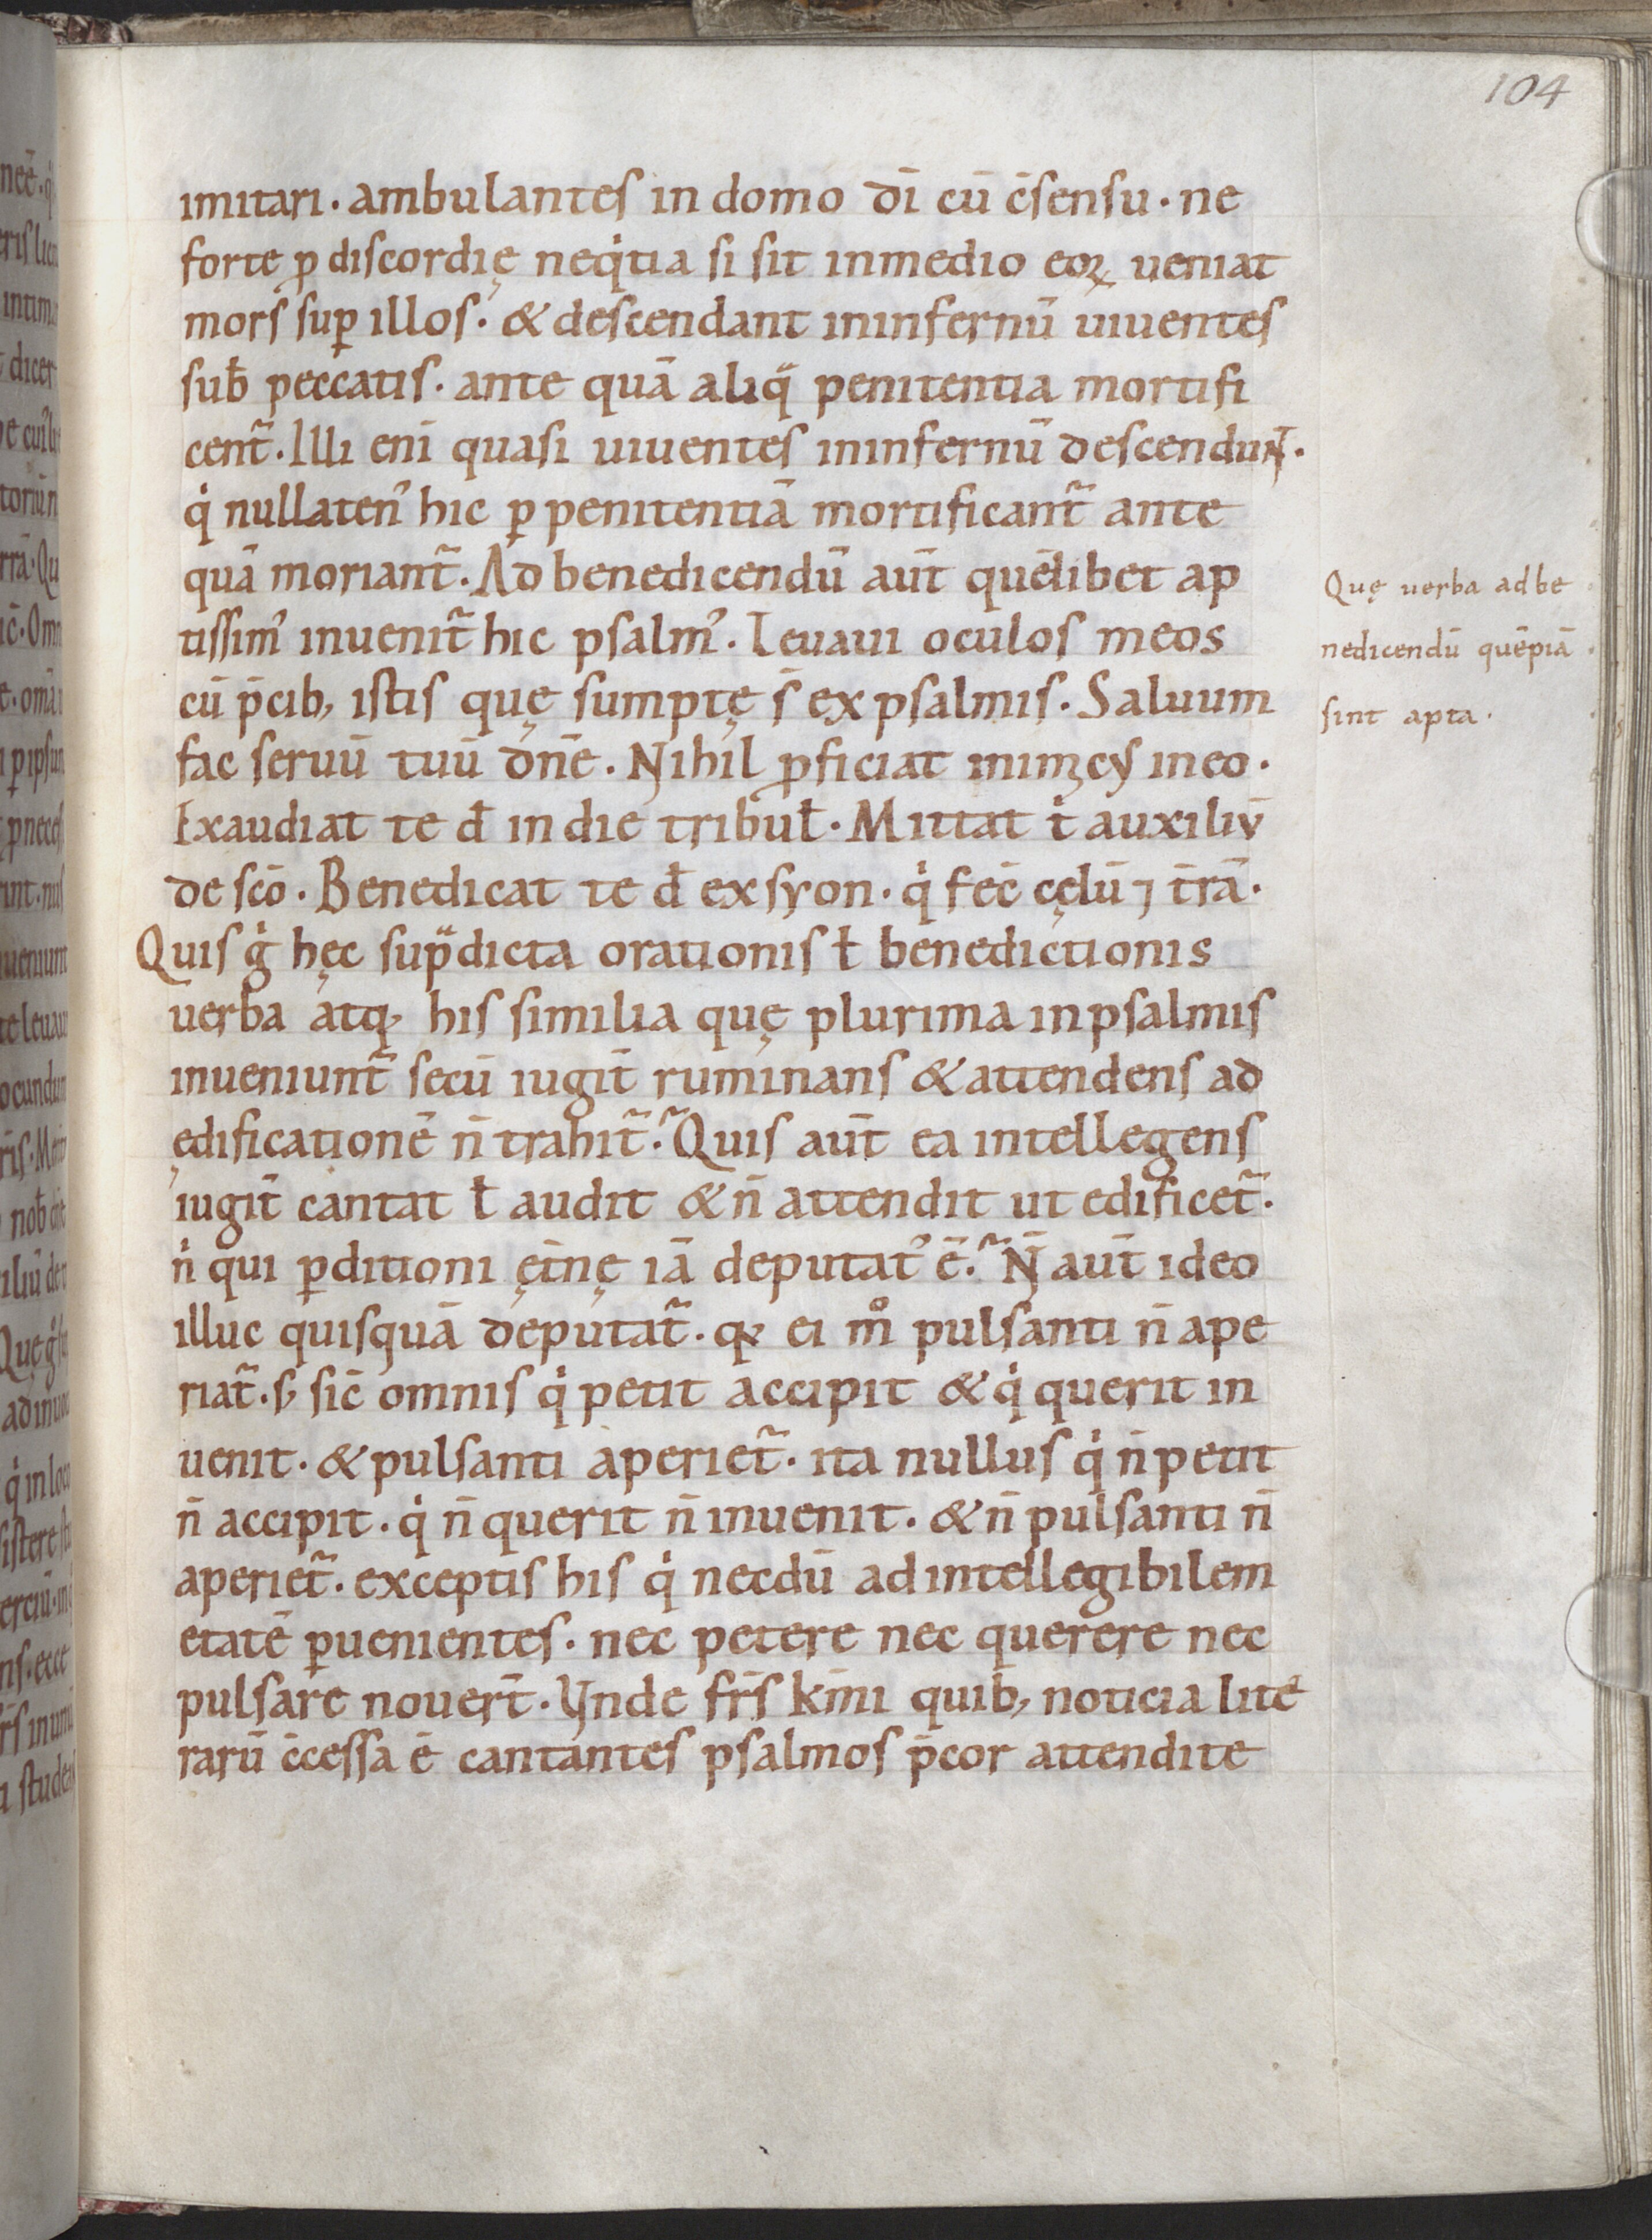 104
imitari · ambulantes in domo dī cū c̄sensu · ne
forte ꝓ discordię neq̇tia si sit inmedio eoꝝ ueniat
mors suꝑ illos · & descendant ininfernū uiuentes
sub̄ peccatis · ante quā aliq̈ penitentia mortifi
cent̃ · Illi eni̅ quasi uiuentes ininfernū descendunt̄ ·
q̇ nullaten᾿ hic ꝑ penitentiā mortificant̃ ante
quā moriant̃ · Ad benedicendū aut̄ quēlibet ap
tissim᾿ inuenit̃ hic psalm᾿ · Leuaui oculos meos
cū p̄cib; istis quę sumptę s̄ ex psalmis · Saluum
fac seruū tuū dn̄e · Nihil ꝓficiat inimicꝰ ineo ·
Exaudiat te đ in die tribuł · Mittat ṫ auxiliū
de sc̄o · Benedicat te đ ex syon · q̇ fec̄ cęlū ⁊ t̄rā ·
Quis g̊ hęc sup̈dicta orationis ł benedictionis
uerba atq; his similia quę plurima inpsalmis
inueniunt̃ secū iugit̄ ruminans & attendens ad
ędificationē n̄ trahit̃ · Quis aut̄ ea intellegens
iugit̄ cantat ł audit & n̄ attendit ut edificet̃ ·
n̍ qui ꝑditioni ęt̄nę iā deputat᾿ ē · N̄ aut̄ ideo
illuc quisquā deputat̃ · q; ei m̊ pulsanti n̄ ape
riat̃ · s; sic̄ omnis q̇ petit accipit & q̇ querit in
uenit · & pulsanti aperiet̃ · ita nullus q̇ n̄ petit
n̄ accipit · q̇ n̄ querit n̄ inuenit · & n̄ pulsanti n̄
aperiet̃ · exceptis his q̇ necdū ad intellegibilem
etatē ꝑuenientes · nec petere nec querere nec
pulsare nouer̄t · Vnde fr̄s km̄i quib; noticia litte
rarū c̄cessa ē cantantes psalmos p̄cor attendite
Quę uerba ad be
nedicendū quēpiā
sint apta ·